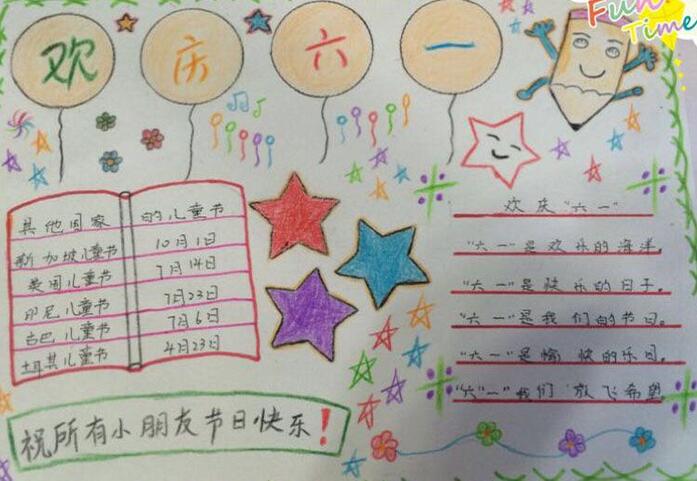 Fun Time
欢庆六一
其他国家的儿童节
新加坡儿童节 10月1日
美国儿童节 7月14日
印尼儿童节 7月23日
古巴儿童节 7月6日
土耳其儿童节 4月23日
欢庆“六一”
“六一”是欢乐的海洋。
“六一”是快乐的日子。
“六一”是我们的节日。
“六一”是愉快的乐日。
“六“一”我们 放飞希望
祝所有小朋友节日快乐！